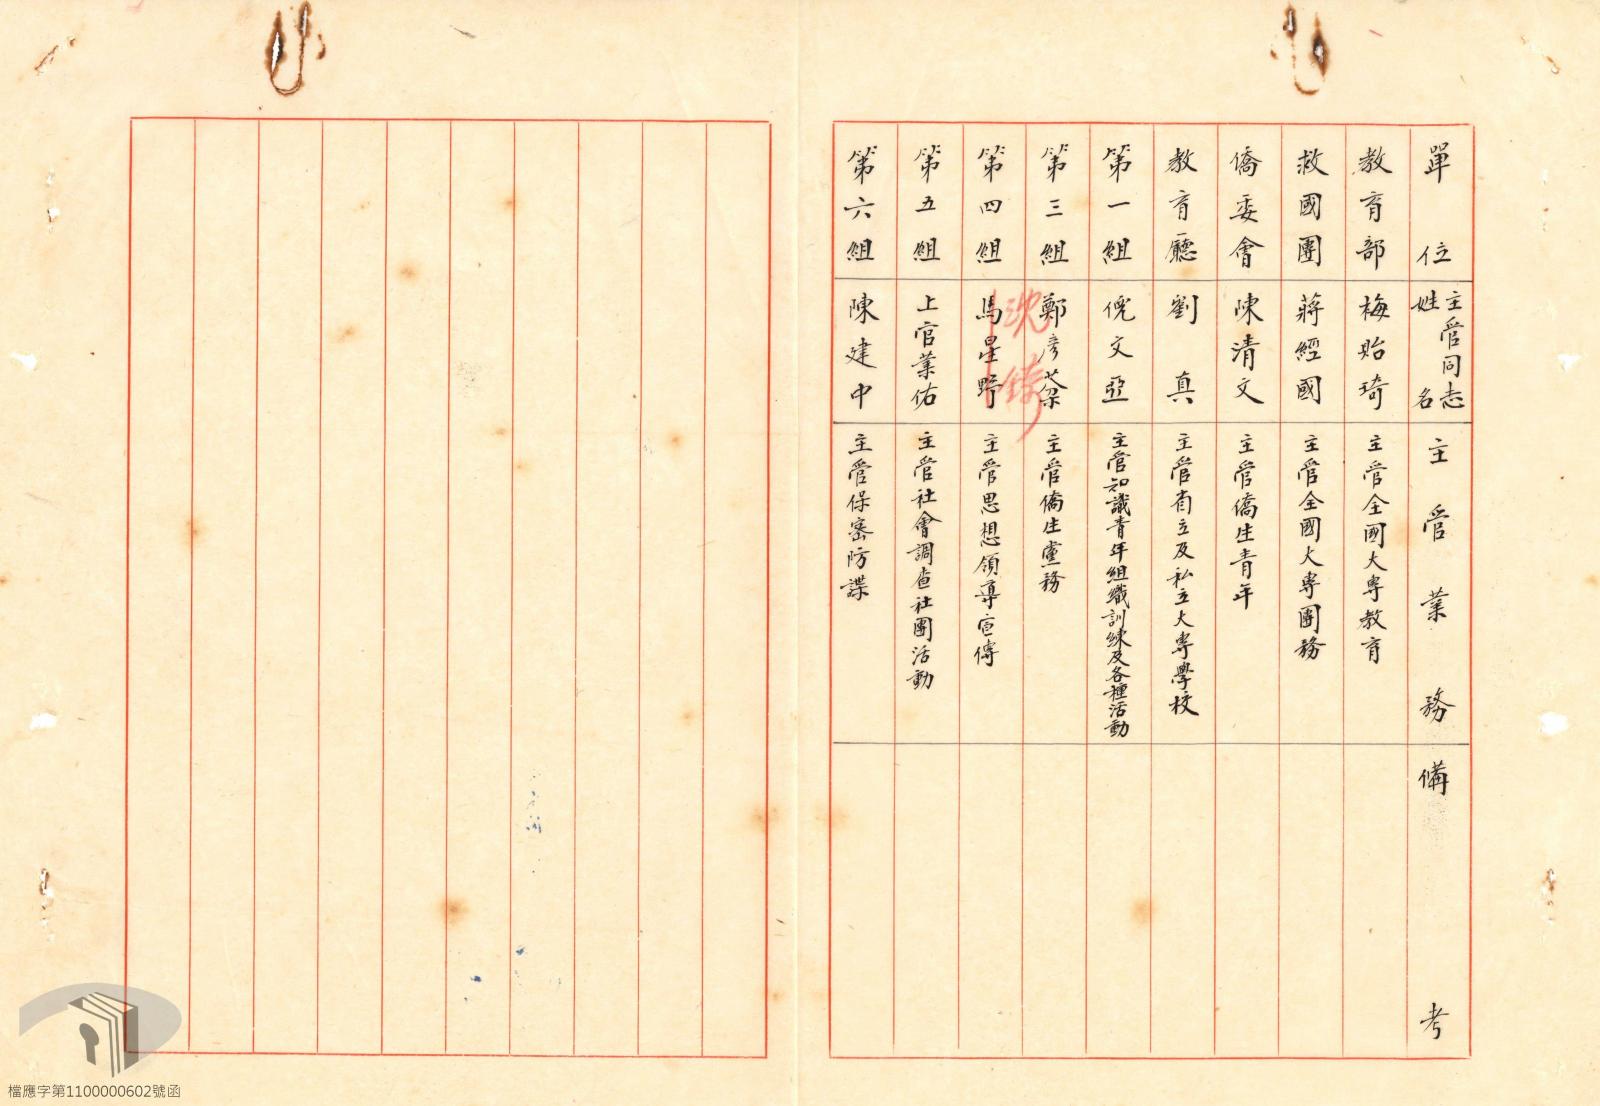 單位 主管同志姓名 主管業務 備考
教育部 梅貽琦 主管全國大專教育
救國團 蔣經國 主管全國大專團務
僑委會 陳清文 主管僑生青年
教育廳 劉真 主管省立及私立大專學校
第一組 倪文亞 主管知識青年組織訓練及各種活動
第三組 鄭彥棻 主管僑生黨務
第四組 馬星野 主管思想領導宣傳
沈錡
第五組 上官業佑 主管社會調查社團活動
第六組 陳建中 主管保密防諜
檔應字第1100000602號函